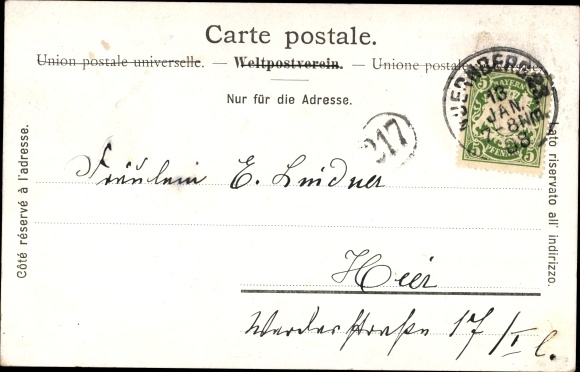 Carte postale.
Union postale universelle. — Weltpostverein. — Unione postale
Nur für die Adresse.
NUERNBERG
13
JAN
7-8NM
98
BAYERN
5 PFENNIG 5
317
Côté réservé à l'adresse.
Lato riservato all' indirizzo.
Fräulein E. Lindner
Hier
Werderstraße 17/I l.